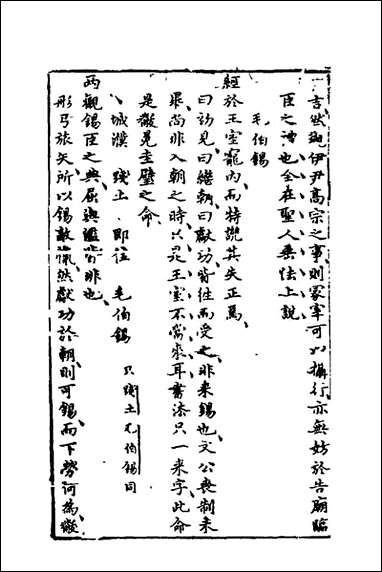 言然觀伊尹高宗之事則冢宰可以攝行亦無妨於告廟臨
臣之禮也全在聖人垂法上說
毛伯錫
經於王室寵內而特譏其失正焉
曰初見曰繼朝曰獻功皆往而受之非来錫也文公喪制未
畢尚非入朝之時只是王室不當來耳書法只一来字此命
是黻冕圭璧之命
城濮 踐土 即位 毛伯錫 只踐土毛伯錫同
两觀錫臣之典屈與濫皆非也
彤弓旅矢所以錫敵愾然獻功於朝則可錫而下勞何為黻